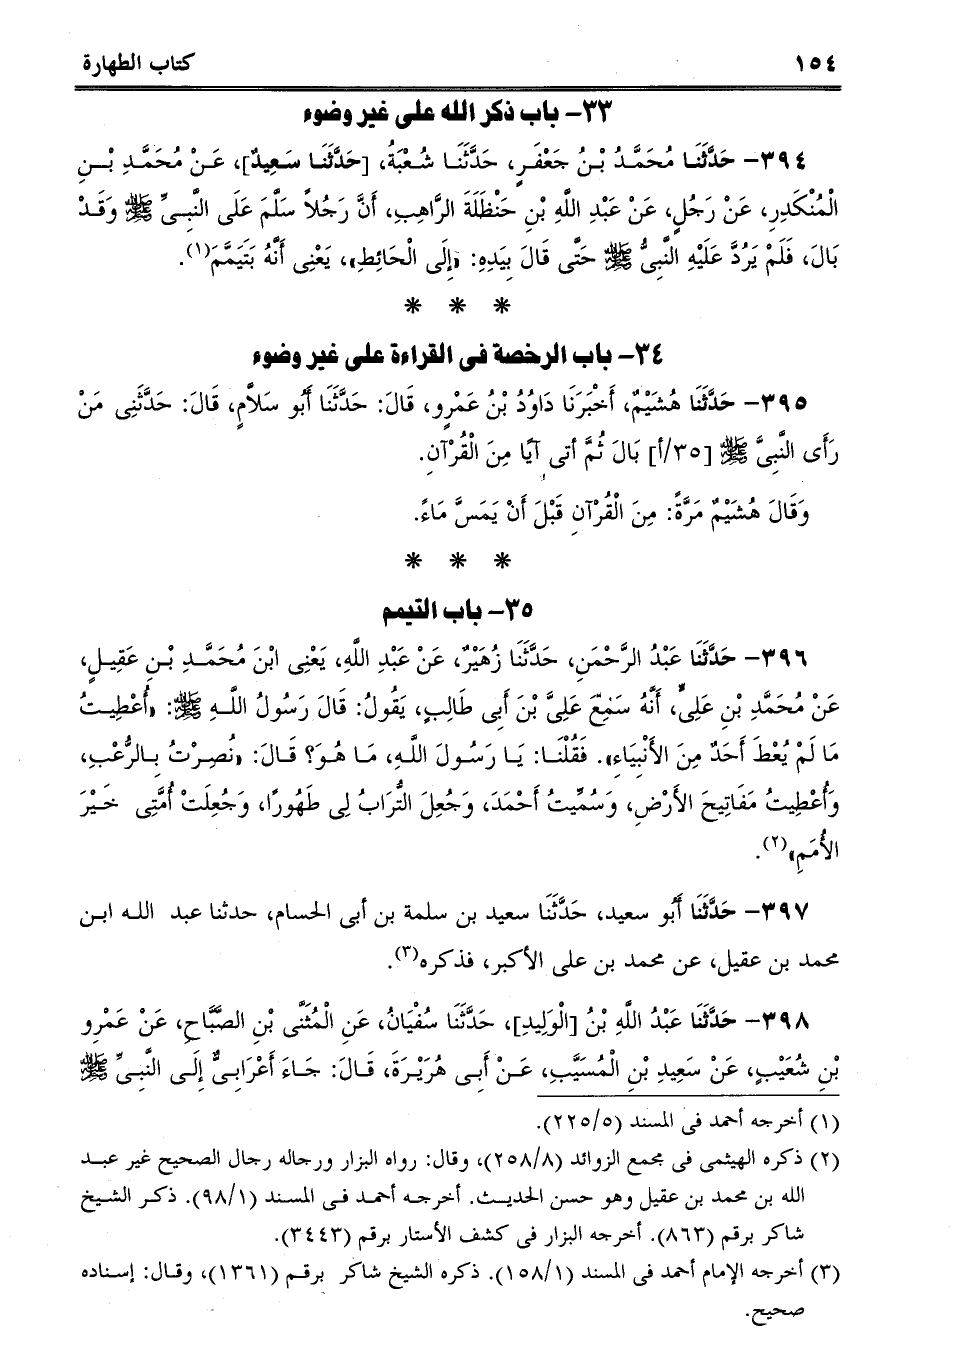 ١٥٤ كتاب الطهارة
٣٣- باب ذكر الله على غير وضوء
٣٩٤- حَدَّثَنَا مُحَمَّدُ بْنُ جَعْفَرٍ، حَدَّثَنَا شُعْبَةُ، [حَدَّثَنَا سَعِيدٌ]، عَنْ مُحَمَّدِ بْنِ
الْمُنْكَدِرِ، عَنْ رَجُلٍ، عَنْ عَبْدِ اللَّهِ بْنِ حَنْظَلَةَ الرَّاهِبِ، أَنَّ رَجُلاً سَلَّمَ عَلَى النَّبِيِّ ﷺ وَقَدْ
بَالَ، فَلَمْ يَرُدَّ عَلَيْهِ النَّبِيُّ ﷺ حَتَّى قَالَ بِيَدِهِ: «إِلَى الْحَائِطِ»، يَعْنِى أَنَّهُ بَتَيَمَّمَ(١).
* * *
٣٤- باب الرخصة فى القراءة على غير وضوء
٣٩٥- حَدَّثَنَا هُشَيْمٌ، أَخْبَرَنَا دَاوُدُ بْنُ عَمْرٍو، قَالَ: حَدَّثَنَا أَبُو سَلاَّمٍ، قَالَ: حَدَّثَنِى مَنْ
رَأَى النَّبِىَّ ﷺ [٣٥/أ] بَالَ ثُمَّ أَتى آيًا مِنَ الْقُرْآنِ.
وَقَالَ هُشَيْمٌ مَرَّةً: مِنَ الْقُرْآنِ قَبْلَ أَنْ يَمَسَّ مَاءً.
* * *
٣٥- باب التيمم
٣٩٦- حَدَّثَنَا عَبْدُ الرَّحْمَنِ، حَدَّثَنَا زُهَيْرٌ، عَنْ عَبْدِ اللَّهِ، يَعْنِى ابْنَ مُحَمَّدِ بْنِ عَقِيلٍ،
عَنْ مُحَمَّدِ بْنِ عَلِىٍّ، أَنَّهُ سَمِعَ عَلِىَّ بْنَ أَبِى طَالِبٍ، يَقُولُ: قَالَ رَسُولُ اللَّهِ ﷺ: «أُعْطِيتُ
مَا لَمْ يُعْطَ أَحَدٌ مِنَ الأَنْبِيَاءِ». فَقُلْنَا: يَا رَسُولَ اللَّهِ، مَا هُوَ؟ قَالَ: «نُصِرْتُ بِالرُّعْبِ،
وَأُعْطِيتُ مَفَاتِيحَ الأَرْضِ، وَسُمِّيتُ أَحْمَدَ، وَجُعِلَ التُّرَابُ لِى طَهُورًا، وَجُعِلَتْ أُمَّتِى خَيْرَ
الأُمَمِ»(٢).
٣٩٧- حَدَّثَنَا أَبُو سعيد، حَدَّثَنَا سعيد بن سلمة بن أبى الحسام، حدثنا عبد الله ابن
محمد بن عقيل، عن محمد بن على الأكبر، فذكره(٣).
٣٩٨- حَدَّثَنَا عَبْدُ اللَّهِ بْنُ [الْوَلِيدِ]، حَدَّثَنَا سُفْيَانُ، عَنِ الْمُثَنَّى بْنِ الصَّبَّاحِ، عَنْ عَمْرِو
بْنِ شُعَيْبٍ، عَنْ سَعِيدِ بْنِ الْمُسَيَّبِ، عَنْ أَبِى هُرَيْرَةَ، قَالَ: جَاءَ أَعْرَابِىٌّ إِلَى النَّبِىِّ ﷺ
(١) أخرجه أحمد فى المسند (٢٢٥/٥).
(٢) ذكره الهيثمى فى مجمع الزوائد (٢٥٨/٨)، وقال: رواه البزار ورجاله رجال الصحيح غير عبد
الله بن محمد بن عقيل وهو حسن الحديث. أخرجه أحمد فى المسند (٩٨/١). ذكر الشيخ
شاكر برقم (٨٦٣). أخرجه البزار فى كشف الأستار برقم (٣٤٤٣).
(٣) أخرجه الإمام أحمد فى المسند (١٥٨/١). ذكره الشيخ شاكر برقم (١٣٦١)، وقال: إسناده
صحيح.